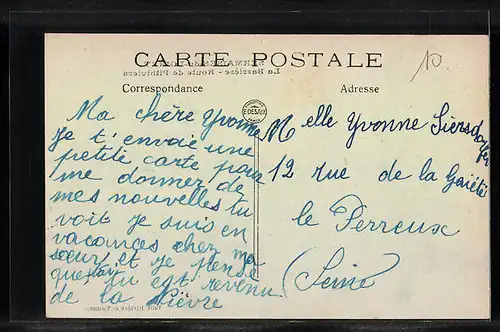 CARTE POSTALE
10
La Barrière - Route de Pithiviers
Correspondance
Adresse
E. DESAIX
Ma chère Yvonne
Je t'envoie une
petite carte pour
me donner de
mes nouvelles tu
voit je suis en
vacances chez ma
sœur, et je pense
que tu est revenu
de la Nièvre
Melle Yvonne
12 rue de la Gaiété
le Perreux
(Seine